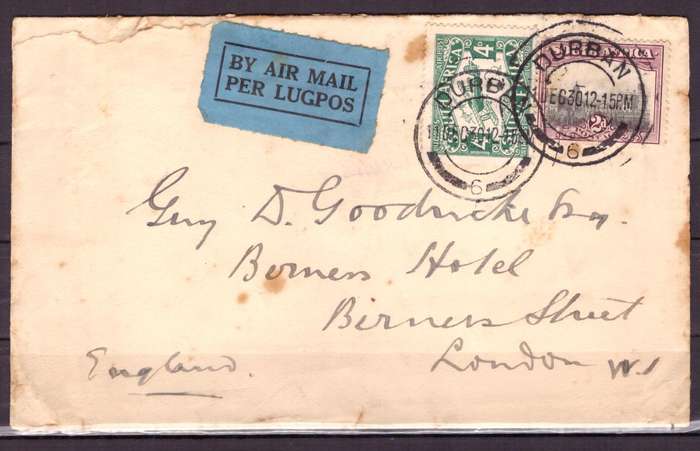 BY AIR MAIL
PER LUGPOS
4D
AFRICA
DURBAN
11 DEC 30 12-15PM
6
DURBAN
11 DEC 30 12-15PM
6
Guy D. Goodricke Esq.
Berners Hotel
Berners Street
London W.1
England.